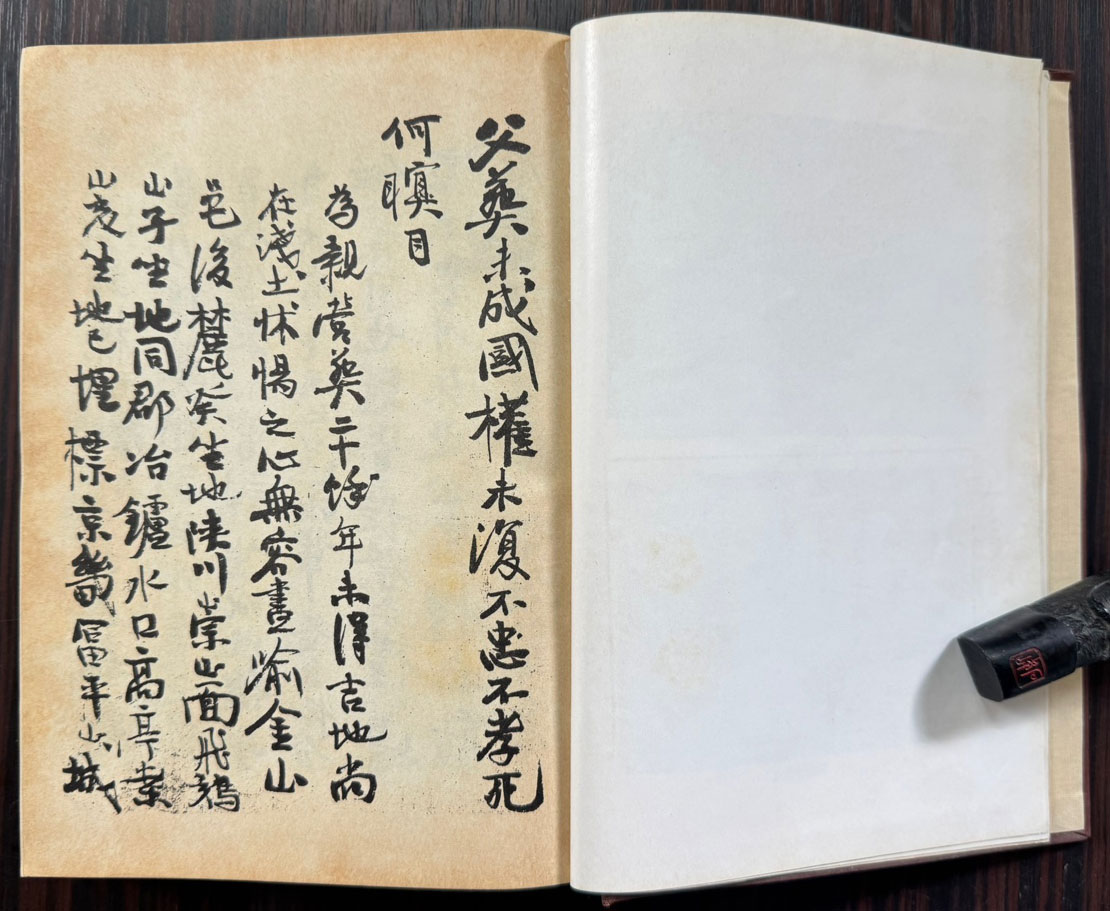 父葬未成國權未復不忠不孝死
何瞑目
為親營葬二十餘年未得吉地尚
在淺土怵惕之心無容盡喩金山
邑後麓癸坐地陜川崇山面飛鵝
山子坐地同郡冶鑪水口高亭案
山亥坐地已埋標京畿冨平山城